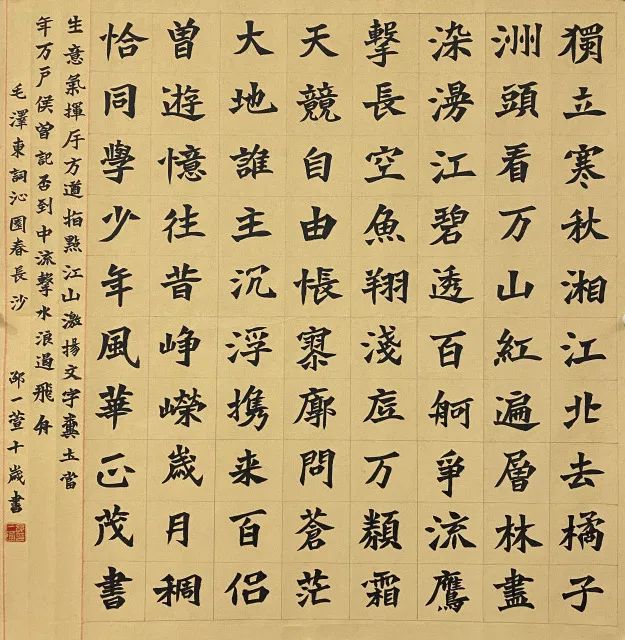 獨立寒秋湘江北去橘子
洲頭看万山紅遍層林盡
染漫江碧透百舸爭流鷹
擊長空魚翔淺底万類霜
天競自由悵寥廓問蒼茫
大地誰主沉浮携来百侣
曾遊憶往昔崢嶸歲月稠
恰同學少年風華正茂書
生意氣揮斥方遒指點江山激揚文字糞土當
年万户侯曾記否到中流擊水浪遏飛舟
毛澤東詞沁園春長沙 邵一萱十歲書